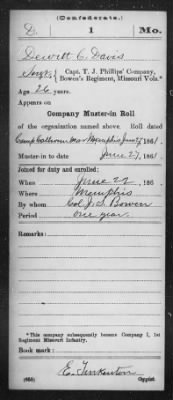 (Confederate.)
D. 1 Mo.
Dewitt C. Davis
Serg't, Capt. T. J. Phillips' Company,
Bowen's Regiment, Missouri Vols.*
Age 26 years.
Appears on
Company Muster-in Roll
of the organization named above. Roll dated
Camp Calhoun near Memphis June 27, 1861.
Muster-in to date June 27, 1861.
Joined for duty and enrolled:
When June 22, 186 .
Where Memphis
By whom Col. J. S. Bowen
Period one year.
Remarks:
*This company subsequently became Company I, 1st
Regiment Missouri Infantry.
Book mark:
E. Tinkinton
(656) Copyist.